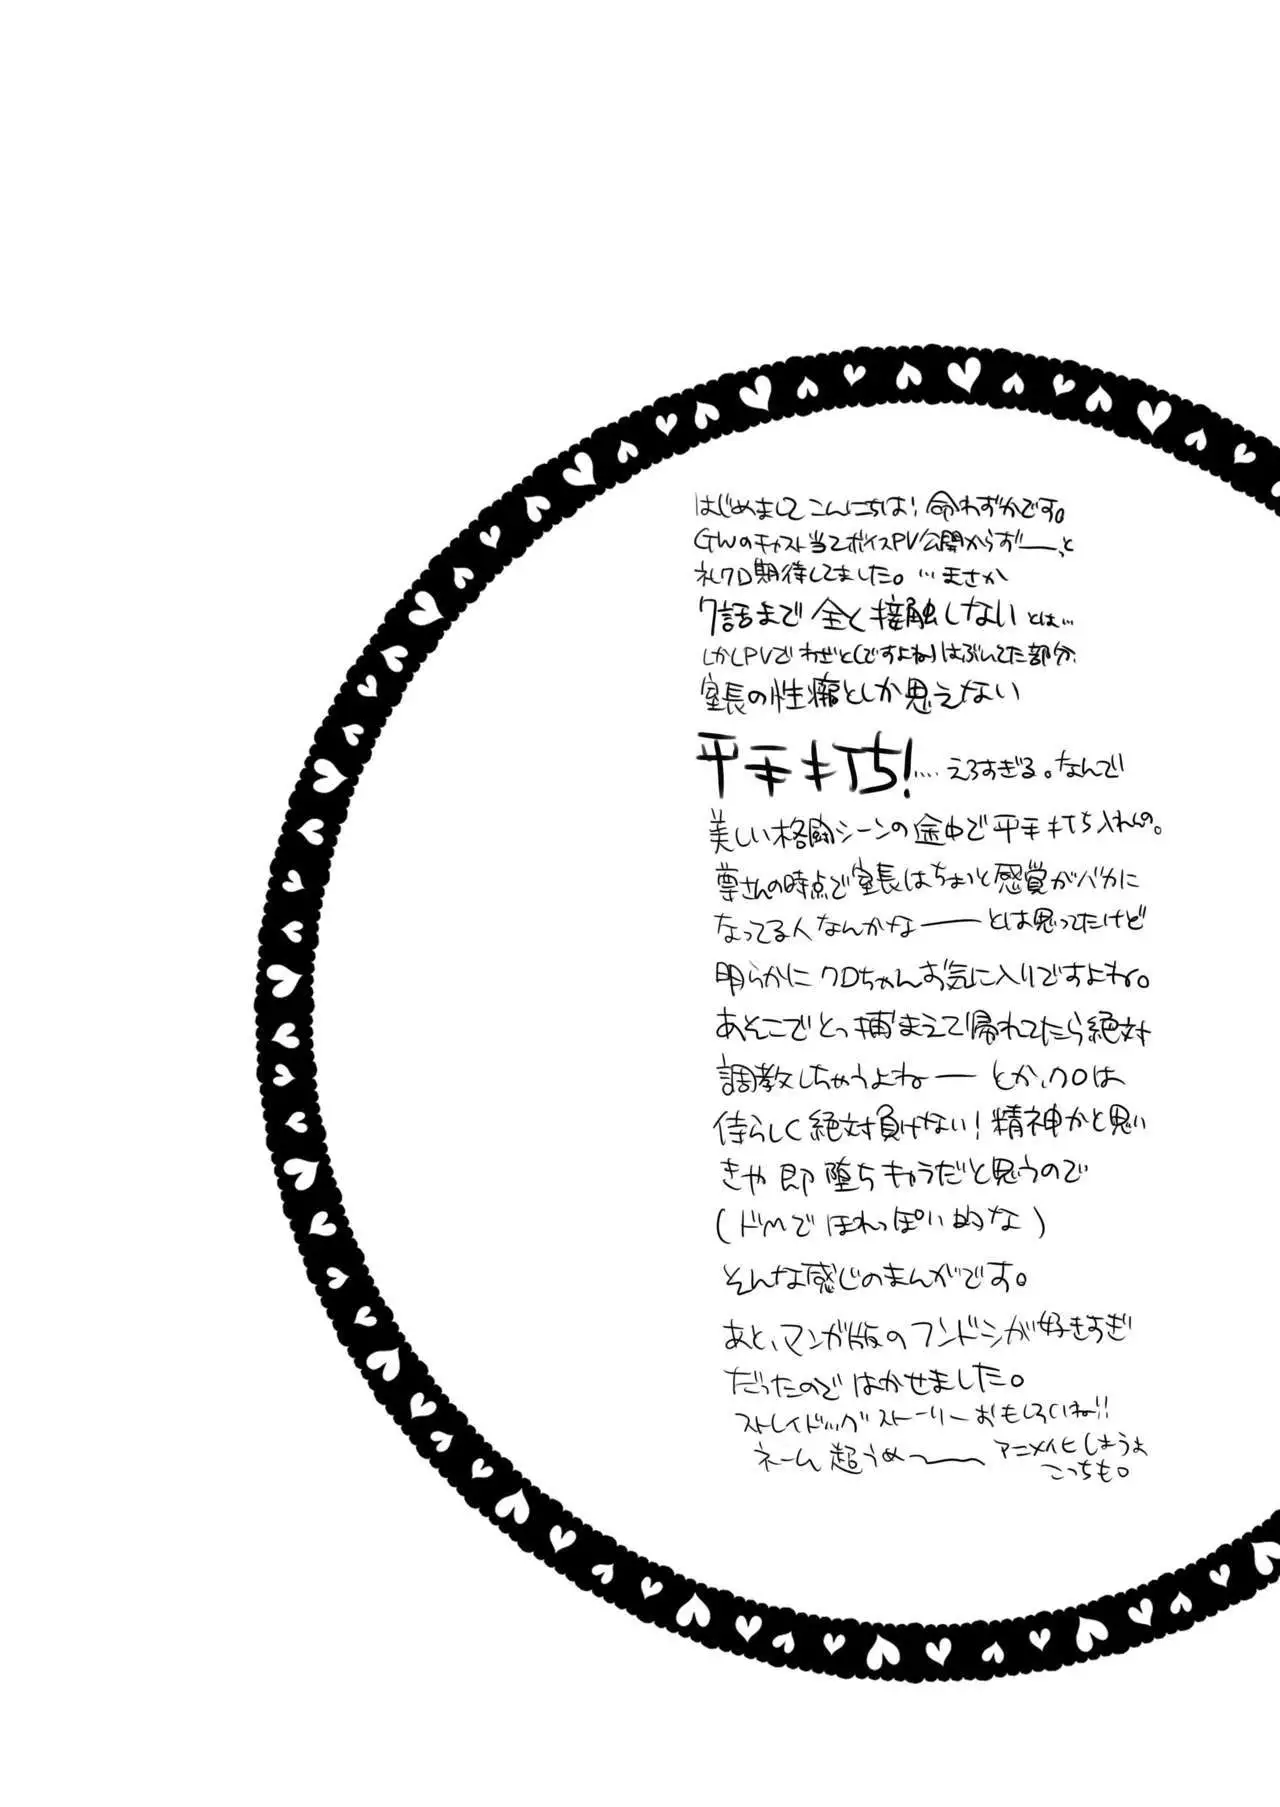 はじめましてこんにちは！命わずかです。
GWのキャスト当てボイスPV公開からずーーっと
礼クロ期待してました。…まさか
7話まで全く接触しないとは…
しかしPVでわざと(ですよね)はぶいてた部分、
室長の性癖としか思えない
平手打ち！…えろすぎる。なんで
美しい格闘シーンの途中で平手打ち入れんの。
尊さんの時点で室長はちょいと感覚がバカに
なってる人なんかなーーとは思ってたけど
明らかにクロちゃんお気に入りですよね。
あそこでとっ捕まえて帰れてたら絶対
調教しちゃうよねーーとか、クロは
侍らしく絶対負けない！精神かと思い
きや即堕ちキャラだと思うので
(ドMでほれっぽい的な)
そんな感じのまんがです。
あと、マンガ版のフンドシが好きすぎ
だったのではかせました。
ストレイドッグストーリーおもしろいね!!
ネーム超うめ〜〜 アニメイヒしようよ
こっちも。